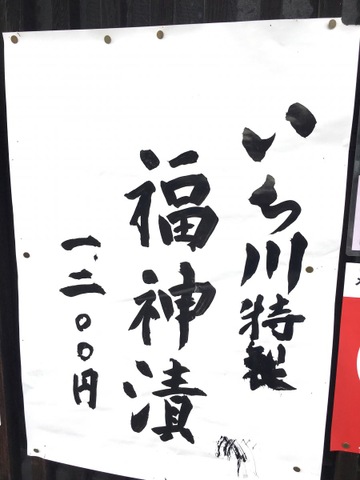 いち川特製
福神漬
一、三〇〇円